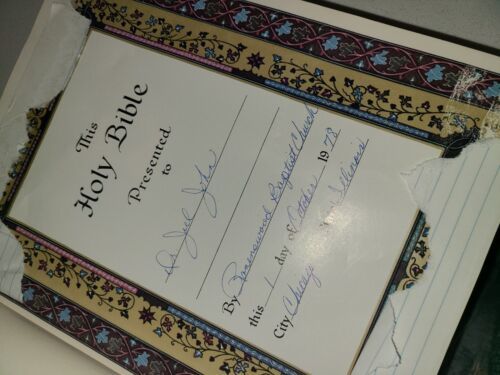 This
Holy Bible
Presented
to
Dr. Joel
By Ravenswood Baptist Church
this 1 day of October 1978
City Chicago State Illinois